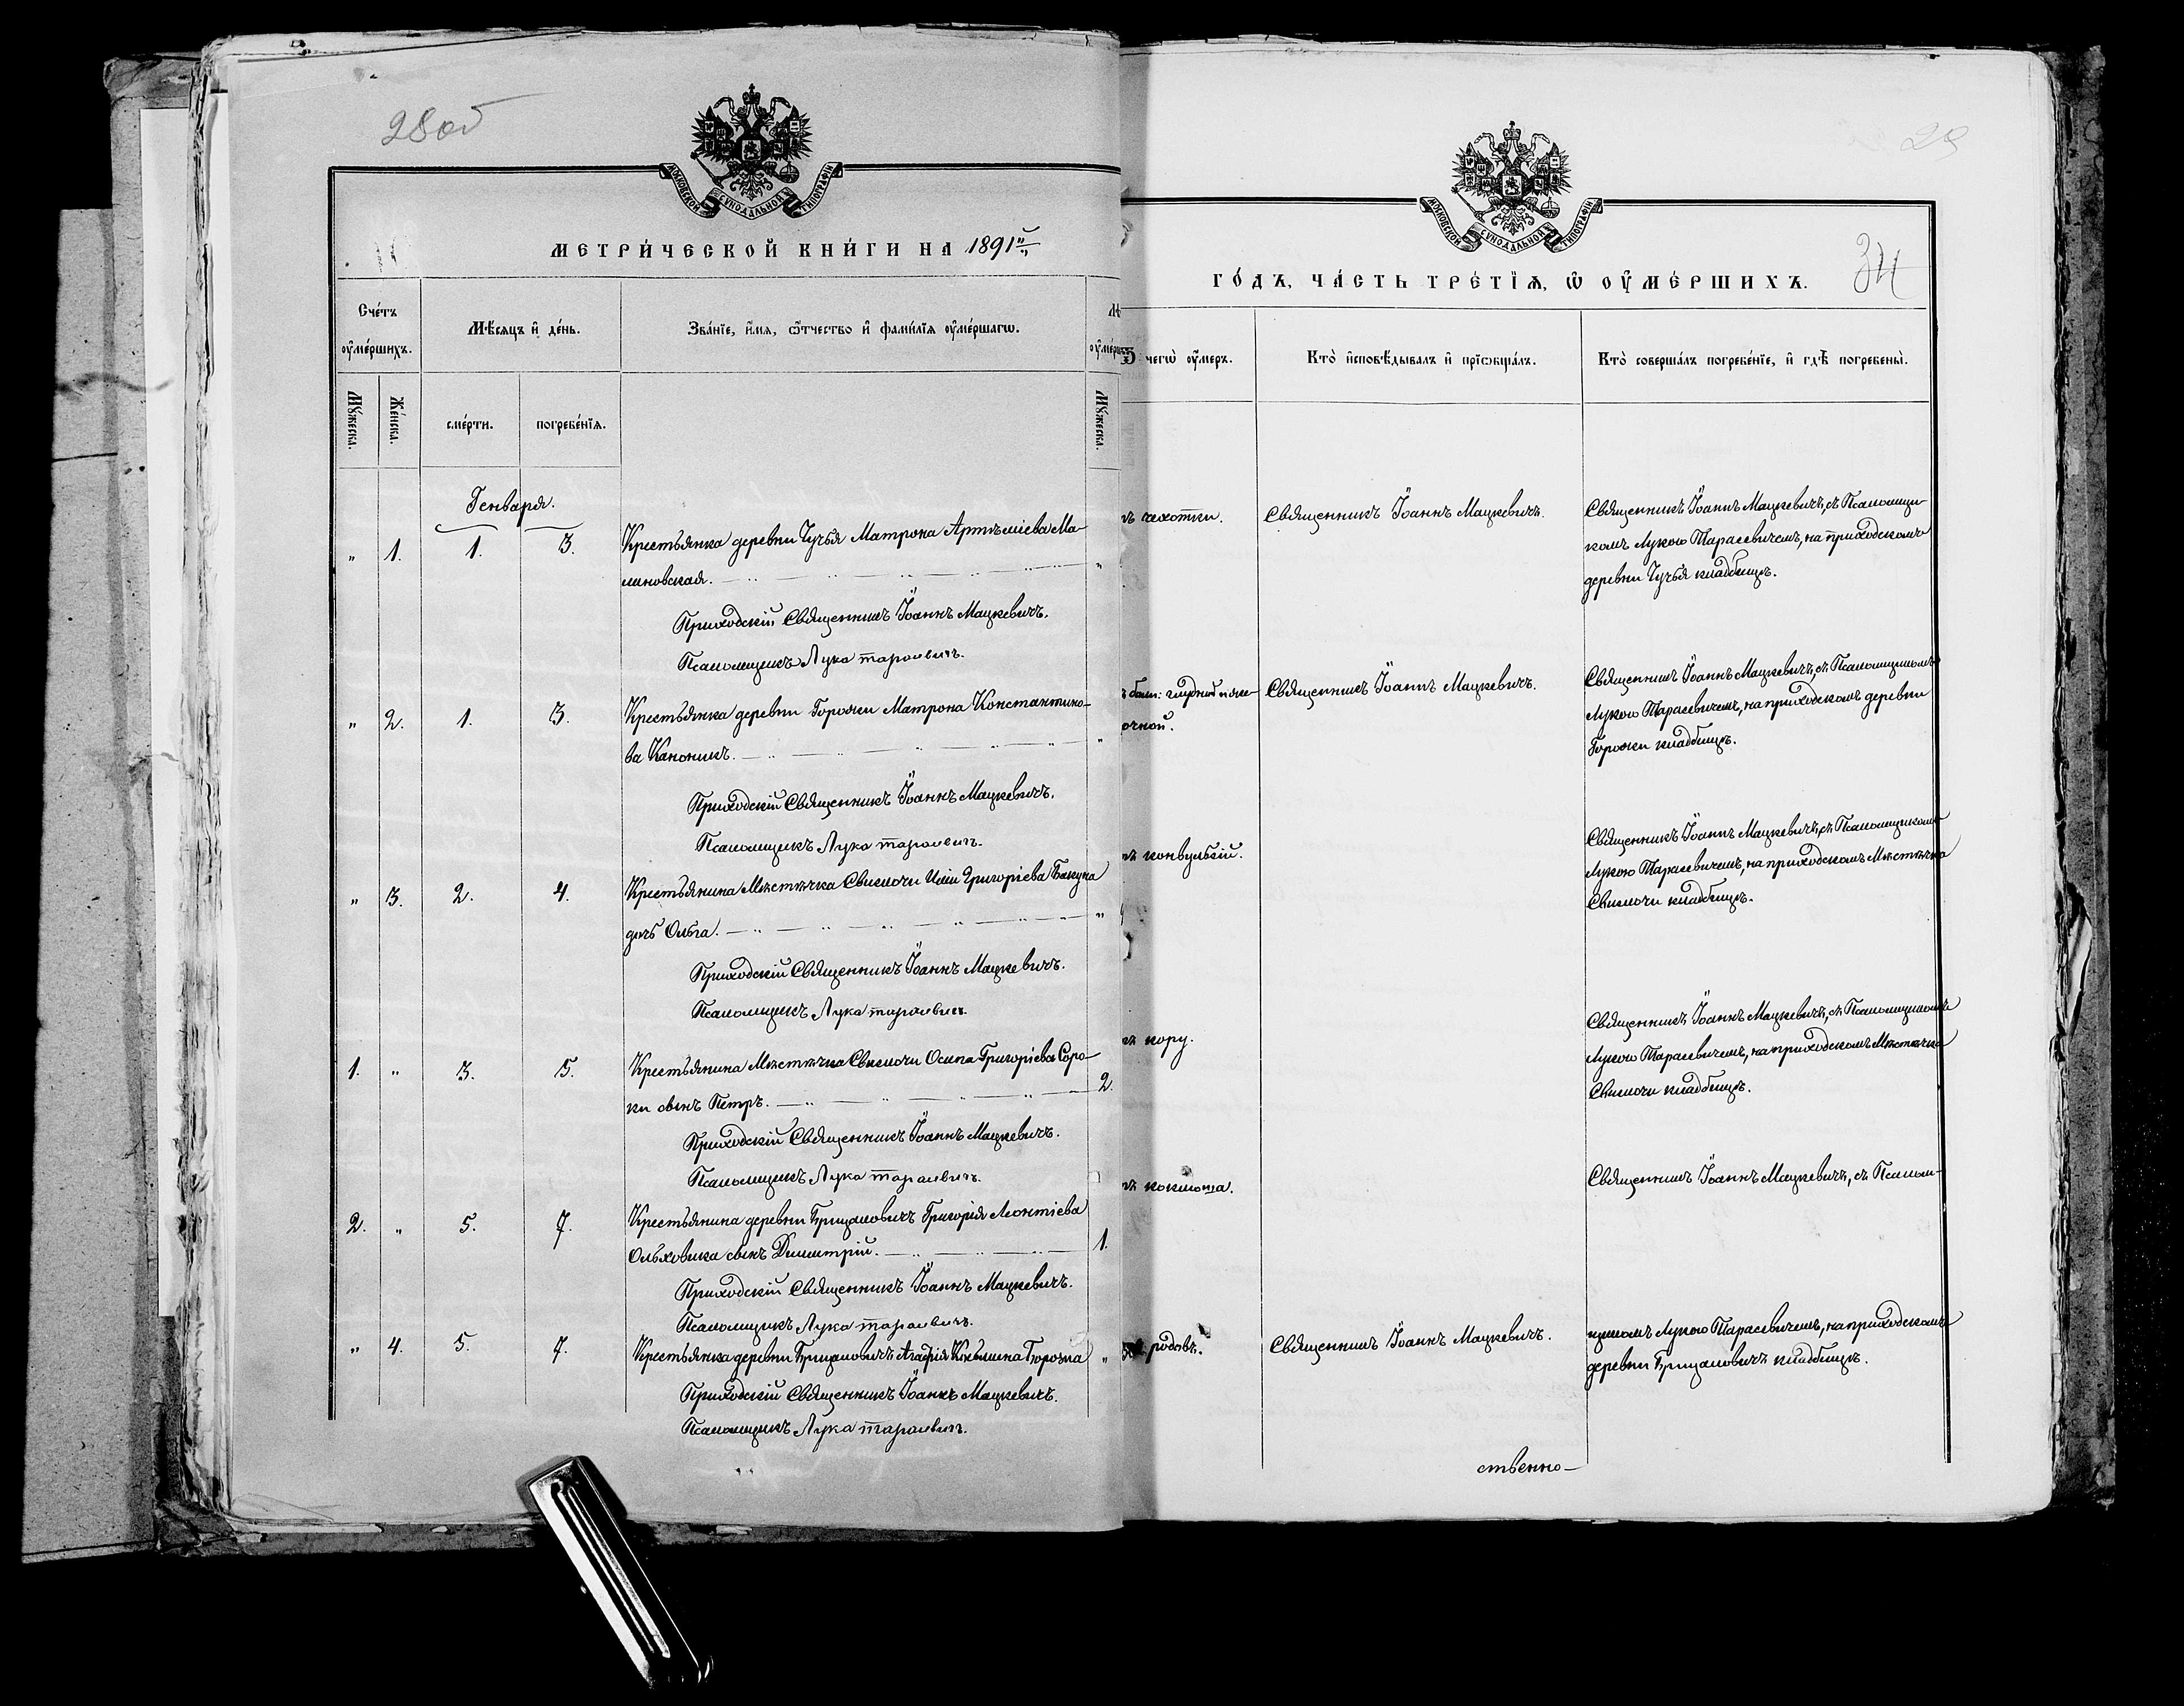 28об
МОСКОВСКОЙ СѴНОДАЛЬНОЙ ТИПОГРАФІИ
МЕТРИ́ЧЕСКОЙ КНИ́ГИ НА 1891й
Сче́тъ ᲂу҆ме́ршихъ.
Мѣ́сяцъ и҆ де́нь.
Зва́нїе, и҆́мѧ, ѻ҆́тчество и҆ фами́лїѧ ᲂу҆ме́ршагѡ.
Мꙋ́жеска.
Же́нска.
сме́рти.
погребе́нїѧ.
Мꙋ́жеска.
Генваря.
„ 1. 1. 3. Крестьянка деревни Чучья Матрона Артемiева Ма-
линовская. „
Приходскій Священникъ Іоаннъ Мацкевичъ.
Псаломщикъ Лука Тарасевичъ.
„ 2. 1. 3. Крестьянка деревни Горожи Матрона Константино-
ва Каноникъ. „
Приходскій Священникъ Іоаннъ Мацкевичъ.
Псаломщикъ Лука Тарасевичъ.
„ 3. 2. 4. Крестьянина Мѣстечка Свислочи Иліи Григоріева Бакуна
дочь Ольга. „
Приходскій Священникъ Іоаннъ Мацкевичъ.
Псаломщикъ Лука Тарасевичъ.
1. „ 3. 5. Крестьянина Мѣстечка Свислочи Осипа Григоріева Соро-
ки сынъ Петръ. 2.
Приходскій Священникъ Іоаннъ Мацкевичъ.
Псаломщикъ Лука Тарасевичъ.
2. „ 5. 7. Крестьянина деревни Брицаловичъ Григорія Леонтіева
Ольховика сынъ Димитрій. 1.
Приходскій Священникъ Іоаннъ Мацкевичъ.
Псаломщикъ Лука Тарасевичъ.
„ 4. 5. 7. Крестьянка деревни Брицаловичъ Агафія „
Приходскій Священникъ Іоаннъ Мацкевичъ.
Псаломщикъ Лука Тарасевичъ.
29
МОСКОВСКОЙ СѴНОДАЛЬНОЙ ТИПОГРАФІИ
34
ГО́ДЪ, ЧА́СТЬ ТРЕ́ТЇѦ, Ѡ҆ ОУ҆МЕ́РШИХЪ.
чегѡ̀ ᲂу҆́меръ.
Кто̀ и҆сповѣ́дывалъ и҆ прїѻбща́лъ.
Кто̀ соверша́лъ погребе́нїе, и҆ гдѣ̀ погребены̀.
чахотки.
Священникъ Іоаннъ Мацкевичъ.
Священникъ Іоаннъ Мацкевичъ, съ Псаломщи-
комъ Лукою Тарасевичемъ, на приходскомъ
деревни Чучья кладбищѣ.
Священникъ Іоаннъ Мацкевичъ.
Священникъ Іоаннъ Мацкевичъ, съ Псаломщикомъ
Лукою Тарасевичемъ, на приходскомъ деревни
Горожи кладбищѣ.
конвульсій.
Священникъ Іоаннъ Мацкевичъ, съ Псаломщикомъ
Лукою Тарасевичемъ, на приходскомъ Мѣстечка
Свислочи кладбищѣ.
кору.
Священникъ Іоаннъ Мацкевичъ, съ Псаломщикомъ
Лукою Тарасевичемъ, на приходскомъ Мѣстечка
Свислочи кладбищѣ.
коклюша.
Священникъ Іоаннъ Мацкевичъ, съ Псалом-
родовъ.
Священникъ Іоаннъ Мацкевичъ.
щикомъ Лукою Тарасевичемъ, на приходскомъ
деревни Брицаловичъ кладбищѣ.
ственно-